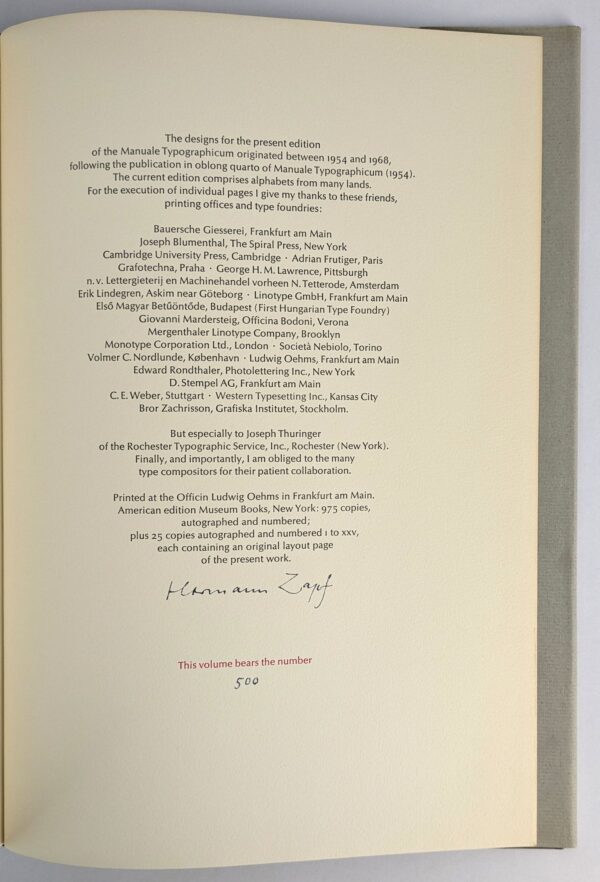 The designs for the present edition
of the Manuale Typographicum originated between 1954 and 1968,
following the publication in oblong quarto of Manuale Typographicum (1954).
The current edition comprises alphabets from many lands.
For the execution of individual pages I give my thanks to these friends,
printing offices and type foundries:
Bauersche Giesserei, Frankfurt am Main
Joseph Blumenthal, The Spiral Press, New York
Cambridge University Press, Cambridge · Adrian Frutiger, Paris
Grafotechna, Praha · George H. M. Lawrence, Pittsburgh
n.v. Lettergieterij en Machinehandel vorheen N. Tetterode, Amsterdam
Erik Lindegren, Askim near Göteborg · Linotype GmbH, Frankfurt am Main
Első Magyar Betűöntőde, Budapest (First Hungarian Type Foundry)
Giovanni Mardersteig, Officina Bodoni, Verona
Mergenthaler Linotype Company, Brooklyn
Monotype Corporation Ltd., London · Società Nebiolo, Torino
Volmer C. Nordlunde, København · Ludwig Oehms, Frankfurt am Main
Edward Rondthaler, Photolettering Inc., New York
D. Stempel AG, Frankfurt am Main
C. E. Weber, Stuttgart · Western Typesetting Inc., Kansas City
Bror Zachrisson, Grafiska Institutet, Stockholm.
But especially to Joseph Thuringer
of the Rochester Typographic Service, Inc., Rochester (New York).
Finally, and importantly, I am obliged to the many
type compositors for their patient collaboration.
Printed at the Officin Ludwig Oehms in Frankfurt am Main.
American edition Museum Books, New York: 975 copies,
autographed and numbered;
plus 25 copies autographed and numbered I to XXV,
each containing an original layout page
of the present work.
Hermann Zapf
This volume bears the number
500